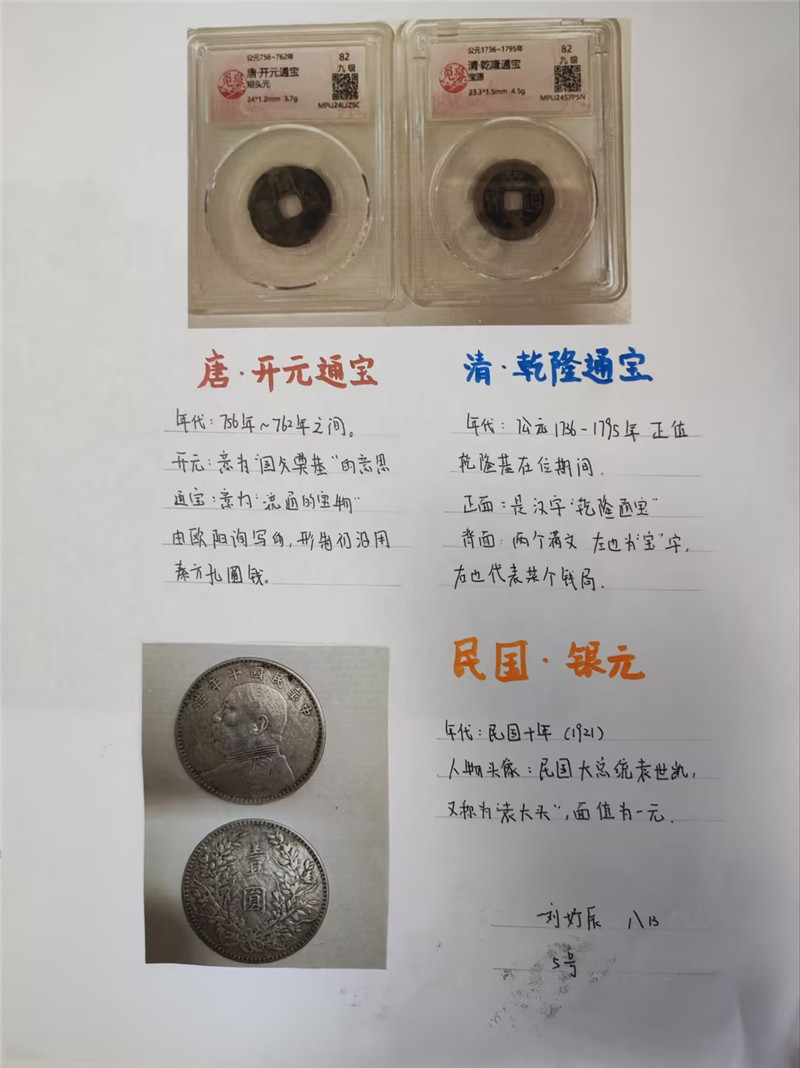 公元756~762年
82
九级
唐·开元通宝
短头元
24*1.2mm 3.7g
公元1736~1795年
82
九级
清·乾隆通宝
宝源
23.3*1.5mm 4.5g
唐·开元通宝
年代:756年~762年之间。
开元:意为"国久奠基"的意思
通宝:意为"流通的宝物"
由欧阳询写的,形制仍沿用
秦方孔圆钱。
清·乾隆通宝
年代:公元1736-1795年 正值
乾隆基在位期间.
正面:是汉字"乾隆通宝"
背面:两个满文 左边为"宝"字,
右边代表某个钱局.
中华民国十年造
壹圆
民国·银元
年代:民国十年 (1921)
人物头像:民国大总统袁世凯,
又称为"袁大头",面值为一元.
刘 辰 八13
5号